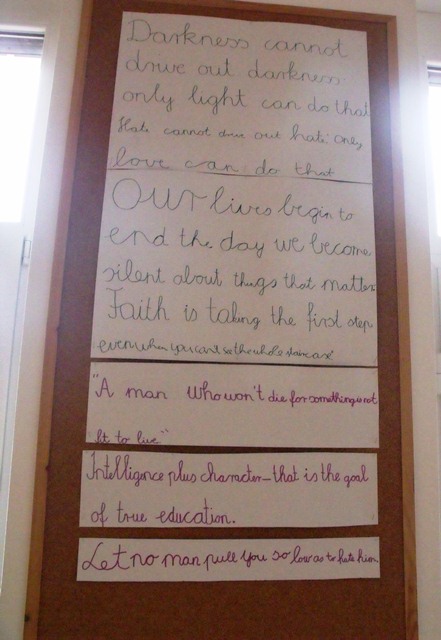 Darkness cannot
drive out darkness.
only light can do that
Hate cannot drive out hate only
love can do that
OUR lives begin to
end the day we become
silent about things that matter
Faith is taking the first step
even when you can't see the whole staircase
"A man who won't die for something is not
fit to live"
Intelligence plus character-that is the goal
of true education.
Let no man pull you so low as to hate him.